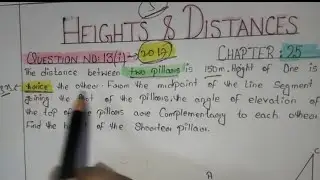 HEIGHTS & DISTANCES
QUESTION NO: 13(i) 2019 CHAPTER: 25
The distance between two pillars is 150m. Height of One is
thrice the other. From the midpoint of the Line Segment
joining the of the pillars, the angle of elevation of
the top of pillars are Complementary to each other.
Find the of the Shorter pillar.